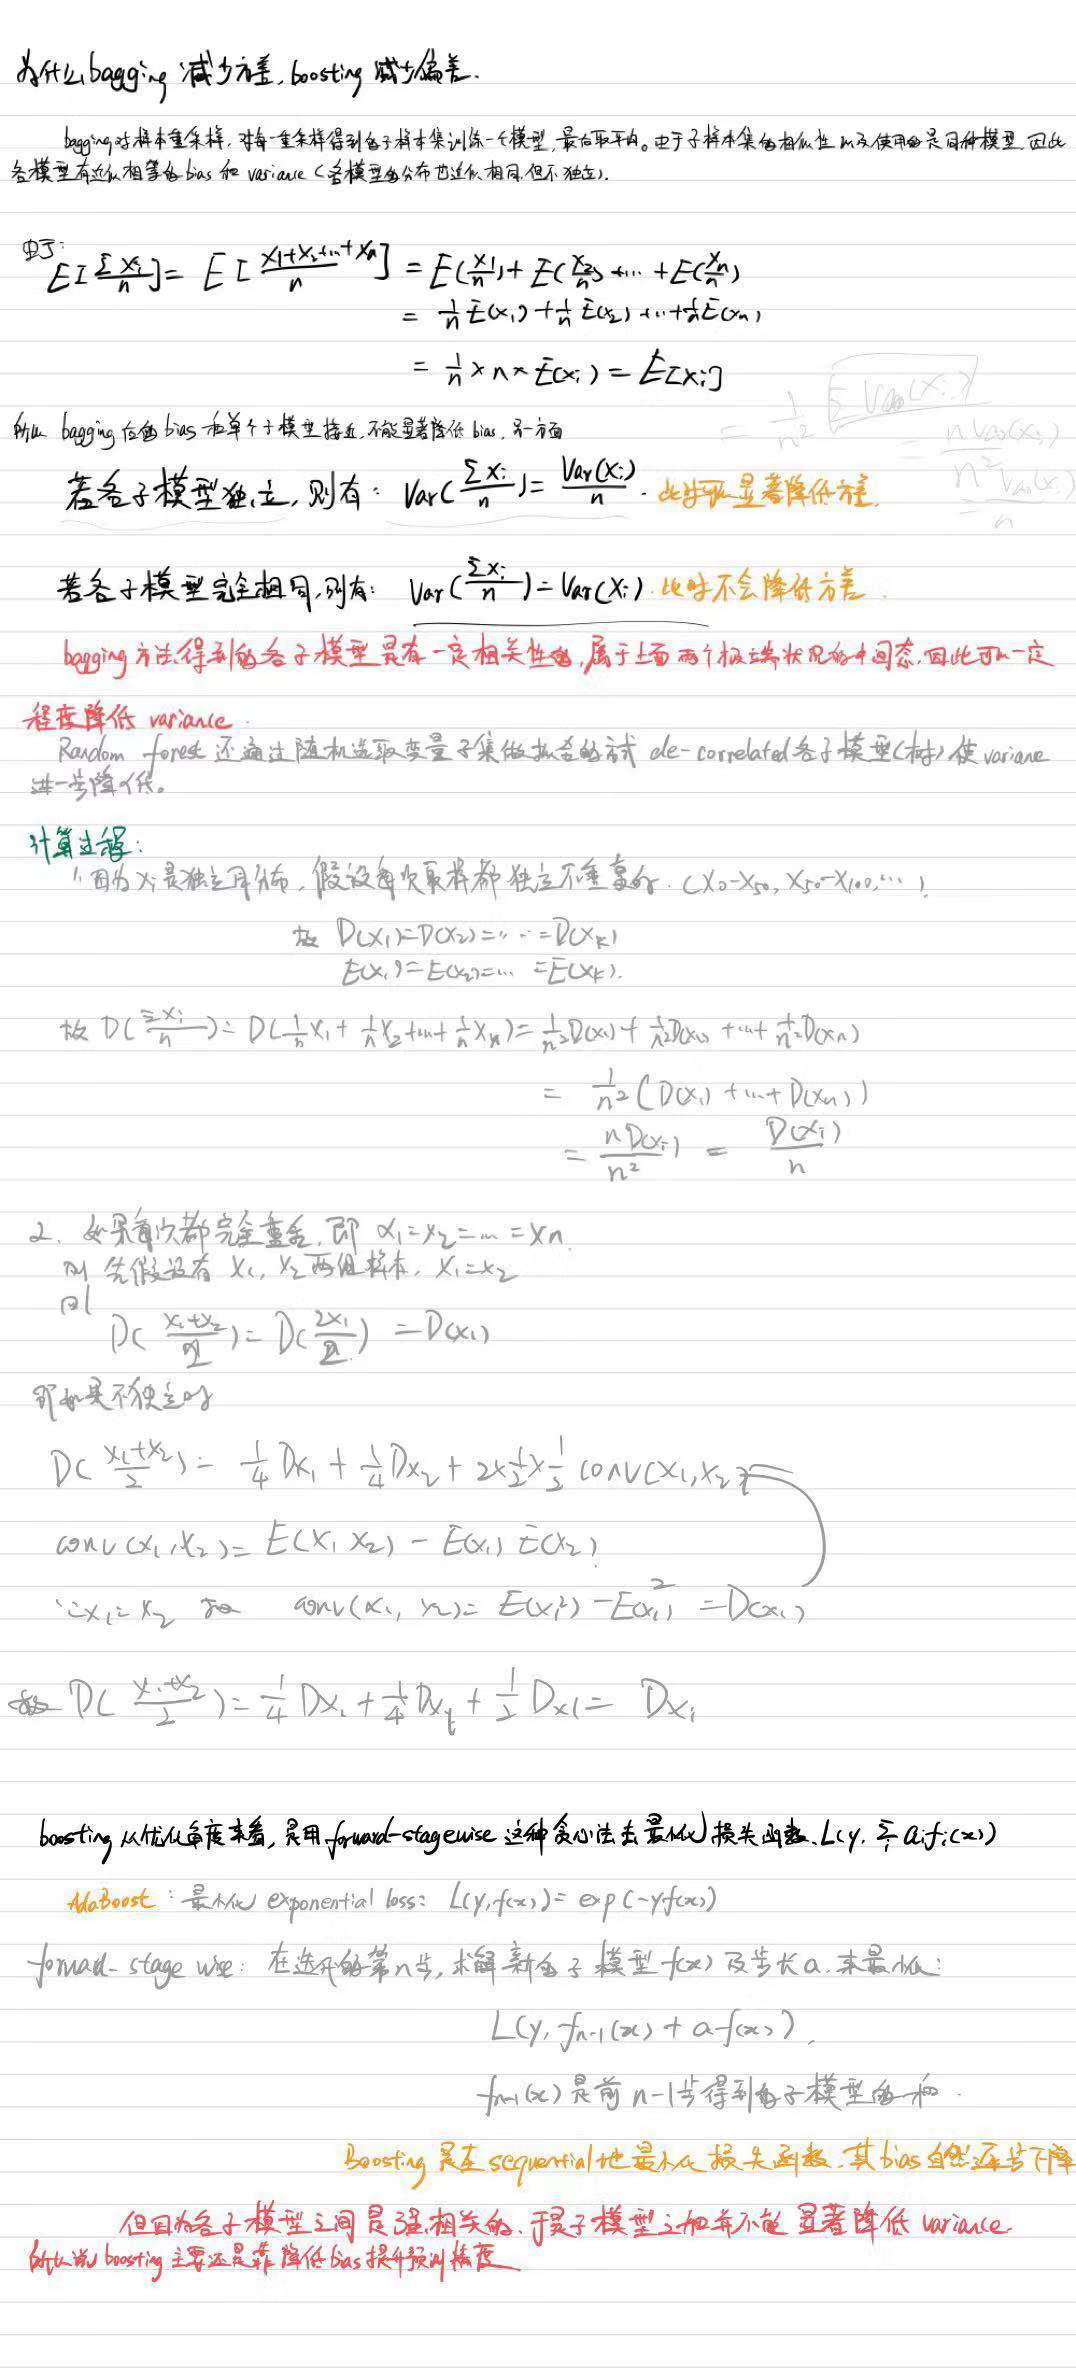 为什么bagging 减少方差，boosting 减少偏差.
bagging对样本重采样，对每一重采样得到的子样本集训练一个模型，最后取平均。由于子样本集的相似性以及使用的是同种模型，因此
各模型有近似相等的bias 和 variance（各模型的分布也近似相同，但不独立).
由于:
E[ΣXi/n] = E[(X1+X2+...+Xn)/n] = E(X1/n) + E(X2/n) + ... + E(Xn/n)
= 1/n E(X1) + 1/n E(X2) + ... + 1/n E(Xn)
= 1/n × n × E(Xi) = E[Xi]
= 1/n² Σ Var(Xi)
= n Var(Xi)/n²
= Var(Xi)/n
所以 bagging 后的 bias 和单个子模型接近，不能显著降低 bias，另一方面
若各子模型独立，则有：Var(ΣXi/n) = Var(Xi)/n. 此时可以显著降低方差.
若各子模型完全相同，则有：Var(ΣXi/n) = Var(Xi). 此时不会降低方差.
bagging 方法得到的各子模型是有一定相关性的，属于上面两个极端状况的中间态，因此可以一定
程度降低 variance.
Random forest 还通过随机选取变量子集做拟合的方式 de-correlated 各子模型（树）使 variance
进一步降低。
计算过程：
1. 因为 Xi 是独立同分布，假设每次取样都独立不重复的. (X0-X50, X50-X100, ...)
故 D(X1)=D(X2)=...=D(Xk)
E(X1)=E(X2)=... =E(Xk).
故 D(ΣXi/n) = D(1/n X1 + 1/n X2 +...+ 1/n Xn) = 1/n² D(X1) + 1/n² D(X2) +...+ 1/n² D(Xn)
= 1/n² (D(X1) +...+ D(Xn))
= n D(Xi)/n² = D(Xi)/n
2. 如果每次都完全重合，即 X1=X2=...=Xn.
则 先假设有 X1, X2 两组样本，X1=X2
则
D((X1+X2)/2) = D(2X1/2) = D(X1)
即如果不独立时
D((X1+X2)/2) = 1/4 DX1 + 1/4 DX2 + 2×1/2×1/2 conv(X1,X2)
conv(X1,X2) = E(X1 X2) - E(X1) E(X2)
∵X1=X2 故 conv(X1, X2) = E(X1²) - E(X1)² = D(X1)
故 D((X1+X2)/2) = 1/4 DX1 + 1/4 DX1 + 1/2 DX1 = DXi
boosting 从优化角度来看，是用 forward-stagewise 这种贪心法去最小化损失函数 L(y, Σi ai fi(x))
AdaBoost：最小化 exponential loss: L(y,f(x)) = exp(-yf(x))
forward-stage wise：在迭代的第n步，求解新的子模型 f(x) 及步长 a 来最小化：
L(y, fn-1(x) + a f(x)).
fn-1(x) 是前 n-1步得到的子模型的和.
Boosting 是在 sequential 地最小化损失函数，其bias 自然逐步下降
但因为各子模型之间是强相关的，于是子模型之和并不能显著降低 variance.
所以说 boosting 主要还是靠降低bias提升预测精度